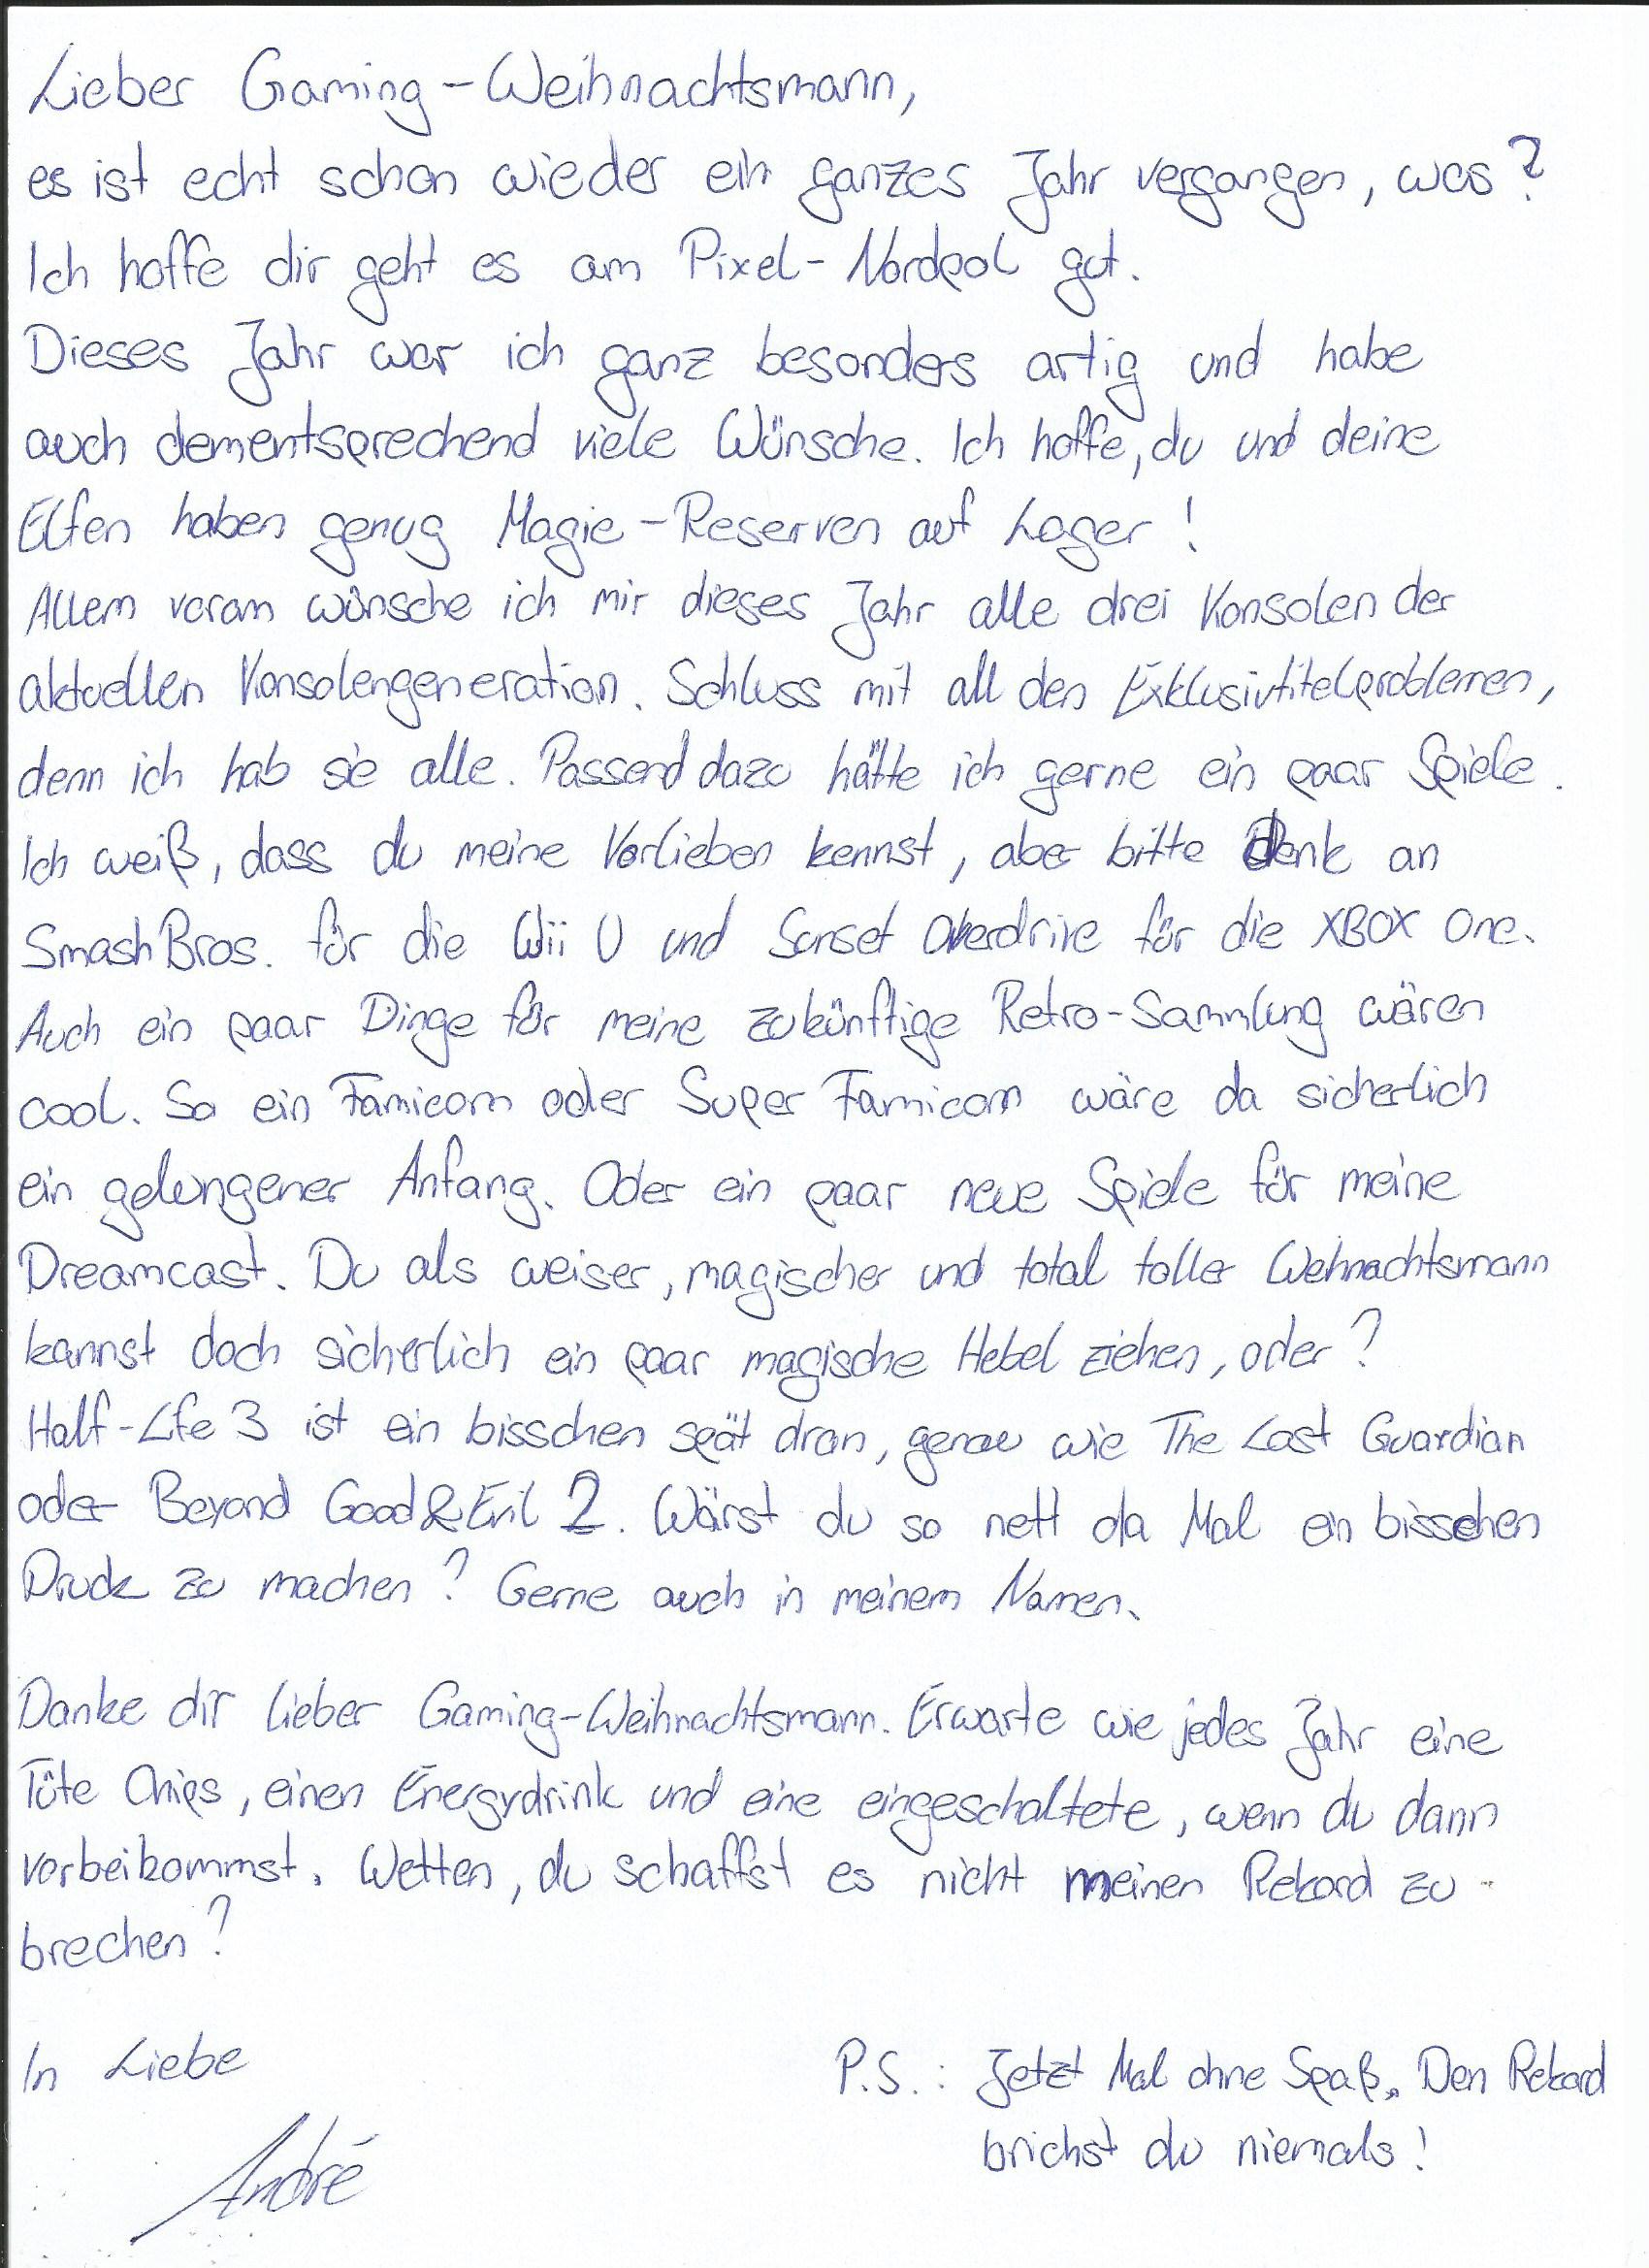 Lieber Gaming-Weihnachtsmann,
es ist echt schon wieder ein ganzes Jahr vergangen, was?
Ich hoffe dir geht es am Pixel-Nordpol gut.
Dieses Jahr war ich ganz besonders artig und habe
auch dementsprechend viele Wünsche. Ich hoffe, du und deine
Elfen haben genug Magie-Reserven auf Lager!
Allem voram wünsche ich mir dieses Jahr alle drei Konsolen der
aktuellen Konsolengeneration. Schluss mit all den Exklusivtitelproblemen,
denn ich hab sie alle. Passend dazu hätte ich gerne ein paar Spiele.
Ich weiß, dass du meine Vorlieben kennst, aber bitte denk an
Smash Bros. für die Wii U und Sunset Overdrive für die XBOX One.
Auch ein paar Dinge für meine zukünftige Retro-Sammlung wären
cool. So ein Famicom oder Super Famicom wäre da sicherlich
ein gelungener Anfang. Oder ein paar neue Spiele für meine
Dreamcast. Du als weiser, magischer und total toller Weihnachtsmann
kannst doch sicherlich ein paar magische Hebel ziehen, oder?
Half-Life 3 ist ein bisschen spät dran, genau wie The Last Guardian
oder Beyond Good & Evil 2. Wärst du so nett da Mal ein bisschen
Druck zu machen? Gerne auch in meinem Namen.
Danke dir lieber Gaming-Weihnachtsmann. Erwarte wie jedes Jahr eine
Tüte Chips, einen Energydrink und eine eingeschaltete, wenn du dann
vorbeikommst. Wetten, du schaffst es nicht meinen Rekord zu
brechen?
In Liebe
André
P.S.: Jetzt Mal ohne Spaß. Den Rekord
brichst du niemals!